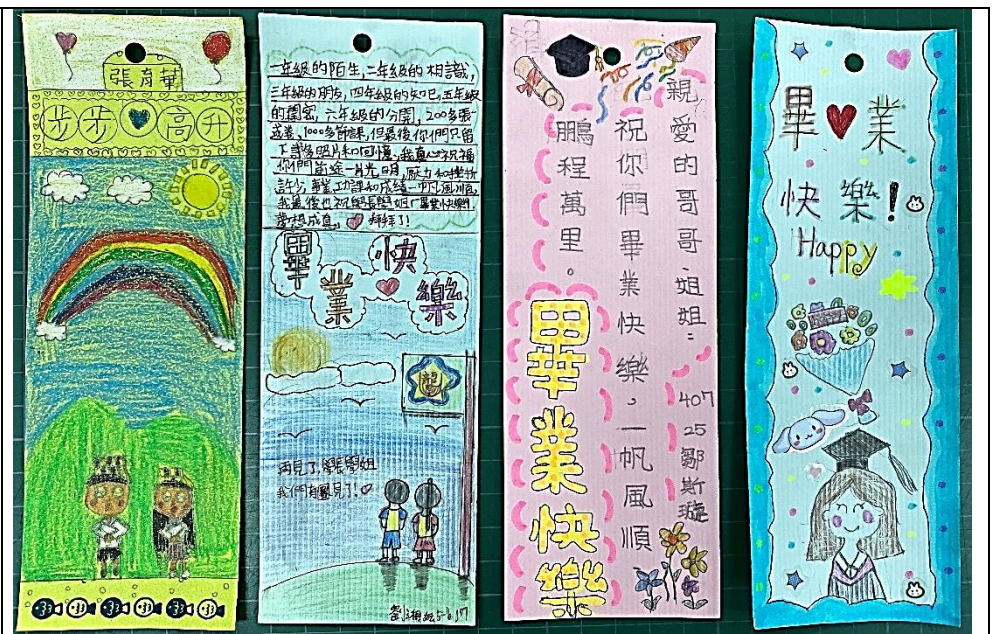 張育華
步步高升
一年級的陌生,二年級的相識,
三年級的朋友,四年級的知己,五年級
的閨密,六年級的分開,200多張
考卷,1000多節課,但最後你們只留
下背後照片和回憶,我真心祝福
你們前途一片光明,壓力和挫折
許少,事業、功課和成績一帆風順,
我最後也祝學長學姐「畢業快樂」,
夢想成真,拜拜了!
畢業快樂
再見了,學長學姐
我們有緣見了!
親愛的哥哥、姐姐:
祝你們畢業快樂,一帆風順
鵬程萬里。
畢業快樂
407
25
鄒
斯
璇
畢業
快樂!
Happy